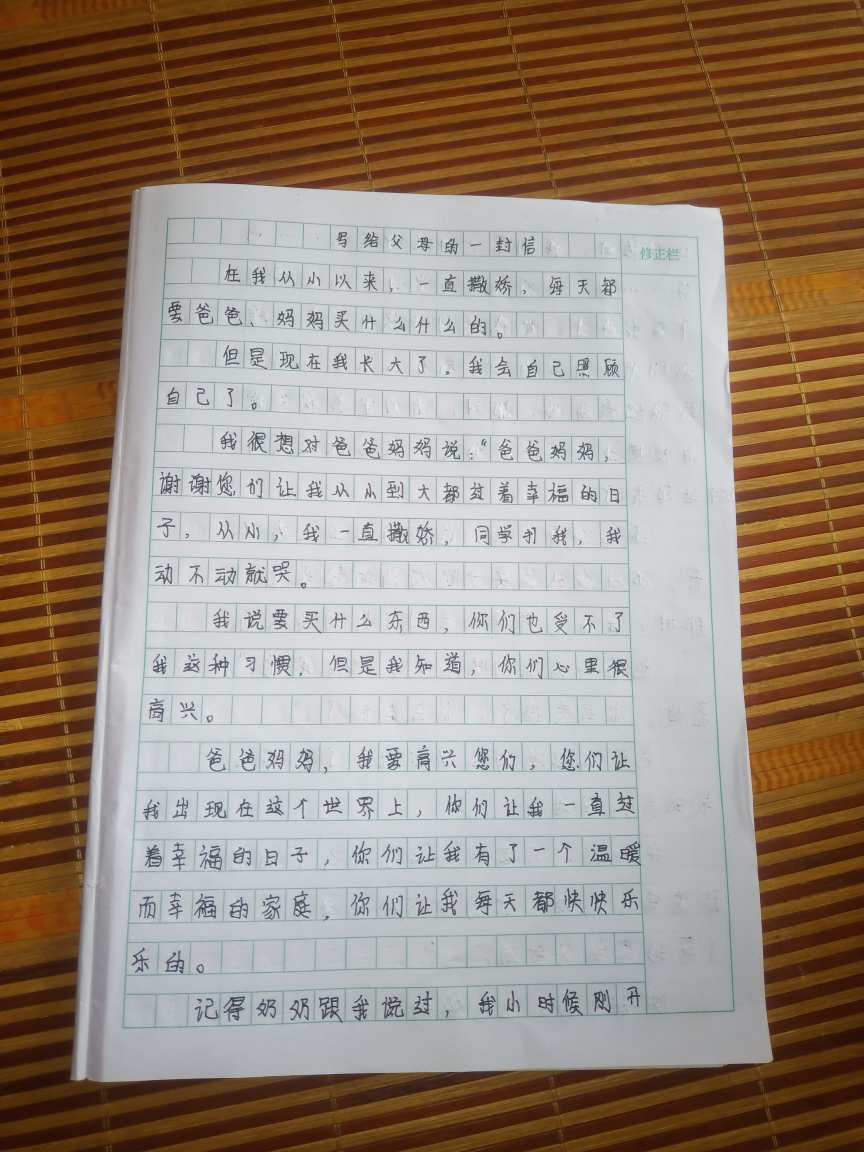 写给父母的一封信
修正栏
在我从小以来，一直撒娇，每天都
要爸爸、妈妈买什么什么的。
但是现在我长大了，我会自己照顾
自己了。
我很想对爸爸妈妈说：“爸爸妈妈，
谢谢您们让我从小到大都过着幸福的日
子，从小，我一直撒娇，同学打我，我
动不动就哭。
我说要买什么东西，你们也受不了
我这种习惯，但是我知道，你们心里很
高兴。
爸爸妈妈，我要高兴您们，您们让
我出现在这个世界上，你们让我一直过
着幸福的日子，你们让我有了一个温暖
而幸福的家庭，你们让我每天都快快乐
乐的。
记得奶奶跟我说过，我小时候刚开